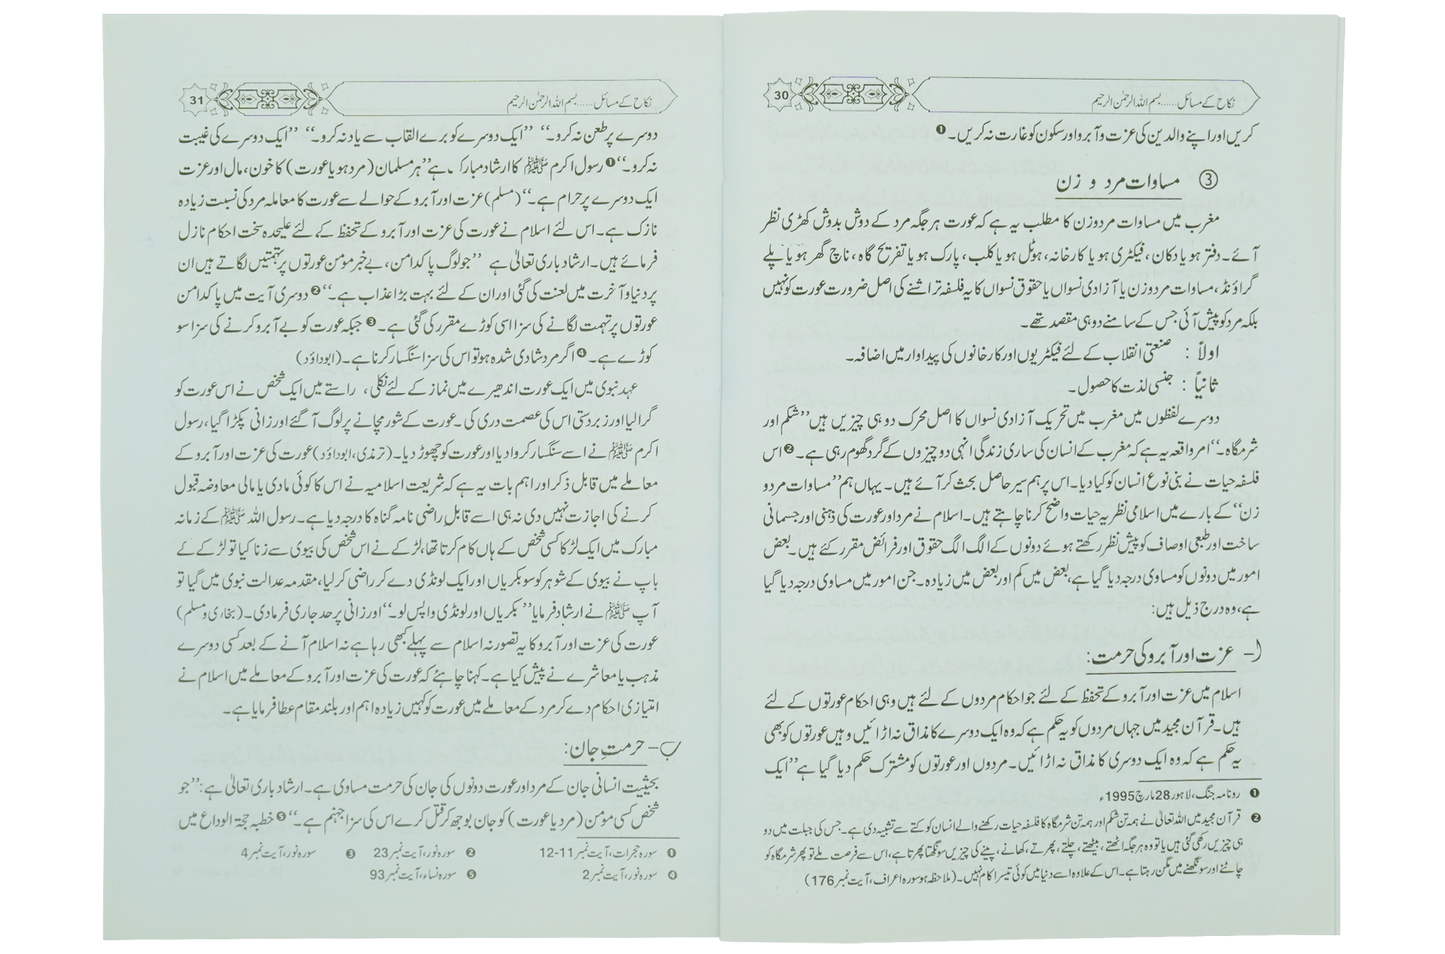 30
نکاح کے مسائل......بسم اللہ الرحمٰن الرحیم
کریں اور اپنے والدین کی عزت و آبرو اور سکون کو غارت نہ کریں۔❶
③ مساوات مرد و زن
مغرب میں مساوات مردوزن کا مطلب یہ ہے کہ عورت ہر جگہ مرد کے دوش بدوش کھڑی نظر
آئے۔ دفتر ہو یا دکان، فیکٹری ہو یا کارخانہ، ہوٹل ہو یا کلب، پارک ہو یا تفریح گاہ، ناچ گھر ہو یا پلے
گراؤنڈ، مساوات مردوزن یا آزادی نسواں یا حقوق نسواں کا یہ فلسفہ تراشنے کی اصل ضرورت عورت کو نہیں
بلکہ مرد کو پیش آئی جس کے سامنے دو ہی مقصد تھے۔
اولاً : صنعتی انقلاب کے لئے فیکٹریوں اور کارخانوں کی پیداوار میں اضافہ۔
ثانیاً : جنسی لذت کا حصول۔
دوسرے لفظوں میں مغرب میں تحریک آزادی نسواں کا اصل محرک دو ہی چیزیں ہیں ”شکم اور
شرمگاہ۔“ امر واقعہ یہ ہے کہ مغرب کے انسان کی ساری زندگی انہی دو چیزوں کے گرد گھوم رہی ہے۔❷ اس
فلسفہ حیات نے بنی نوع انسان کو کیا دیا۔ اس پر ہم سیر حاصل بحث کر آئے ہیں۔ یہاں ہم ”مساوات مردو
زن“ کے بارے میں اسلامی نظریہ حیات واضح کرنا چاہتے ہیں۔ اسلام نے مرد اور عورت کی ذہنی اور جسمانی
ساخت اور طبعی اوصاف کو پیش نظر رکھتے ہوئے دونوں کے الگ الگ حقوق اور فرائض مقرر کئے ہیں۔ بعض
امور میں دونوں کو مساوی درجہ دیا گیا ہے، بعض میں کم اور بعض میں زیادہ۔ جن امور میں مساوی درجہ دیا گیا
ہے، وہ درج ذیل ہیں:
(ا- عزت اور آبرو کی حرمت:
اسلام میں عزت اور آبرو کے تحفظ کے لئے جو احکام مردوں کے لئے ہیں وہی احکام عورتوں کے لئے
ہیں۔ قرآن مجید میں جہاں مردوں کو یہ حکم ہے کہ وہ ایک دوسرے کا مذاق نہ اڑائیں وہیں عورتوں کو بھی
یہ حکم ہے کہ وہ ایک دوسری کا مذاق نہ اڑائیں۔ مردوں اور عورتوں کو مشترک حکم دیا گیا ہے ”ایک
❶ روزنامہ جنگ، لاہور 28 مارچ 1995ء
❷ قرآن مجید میں اللہ تعالیٰ نے ہمہ تن شکم اور ہمہ تن شرمگاہ کا فلسفہ حیات رکھنے والے انسان کو کتے سے تشبیہ دی ہے۔ جس کی جبلت میں دو
ہی چیزیں رکھی گئی ہیں یا تو وہ ہر جگہ اٹھتے، بیٹھتے، چلتے، پھرتے، کھانے، پینے کی چیزیں سونگھتا پھرتا ہے، اس سے فرصت ملے تو پھر شرمگاہ کو
چاٹنے اور سونگھنے میں مگن رہتا ہے۔ اس کے علاوہ اسے دنیا میں کوئی تیسرا کام نہیں۔ (ملاحظہ ہو سورہ اعراف، آیت نمبر 176)
31
نکاح کے مسائل......بسم اللہ الرحمٰن الرحیم
دوسرے پر طعن نہ کرو۔“ ”ایک دوسرے کو برے القاب سے یاد نہ کرو۔“ ”ایک دوسرے کی غیبت
نہ کرو۔“❶ رسول اکرم ﷺ کا ارشاد مبارک ہے ”ہر مسلمان (مرد ہو یا عورت) کا خون، مال اور عزت
ایک دوسرے پر حرام ہے۔“ (مسلم) عزت اور آبرو کے حوالے سے عورت کا معاملہ مرد کی نسبت زیادہ
نازک ہے۔ اس لئے اسلام نے عورت کی عزت اور آبرو کے تحفظ کے لئے علیحدہ سخت احکام نازل
فرمائے ہیں۔ ارشاد باری تعالیٰ ہے ”جو لوگ پاکدامن، بے خبر مومن عورتوں پر تہمتیں لگاتے ہیں ان
پر دنیا و آخرت میں لعنت کی گئی اور ان کے لئے بہت بڑا عذاب ہے۔“❷ دوسری آیت میں پاکدامن
عورتوں پر تہمت لگانے کی سزا اسی کوڑے مقرر کی گئی ہے۔❸ جبکہ عورت کو بے آبرو کرنے کی سزا سو
کوڑے ہے۔❹ اگر مرد شادی شدہ ہو تو اس کی سزا سنگسار کرنا ہے۔ (ابوداؤد)
عہد نبوی میں ایک عورت اندھیرے میں نماز کے لئے نکلی، راستے میں ایک شخص نے اس عورت کو
گرا لیا اور زبردستی اس کی عصمت دری کی۔ عورت کے شور مچانے پر لوگ آ گئے اور زانی پکڑا گیا، رسول
اکرم ﷺ نے اسے سنگسار کروا دیا اور عورت کو چھوڑ دیا۔ (ترمذی، ابوداؤد) عورت کی عزت اور آبرو کے
معاملے میں قابل ذکر اور اہم بات یہ ہے کہ شریعت اسلامیہ نے اس کا کوئی مادی یا مالی معاوضہ قبول
کرنے کی اجازت نہیں دی نہ ہی اسے قابل راضی نامہ گناہ کا درجہ دیا ہے۔ رسول اللہ ﷺ کے زمانہ
مبارک میں ایک لڑکا کسی شخص کے ہاں کام کرتا تھا، لڑکے نے اس شخص کی بیوی سے زنا کیا تو لڑکے کے
باپ نے بیوی کے شوہر کو سو بکریاں اور ایک لونڈی دے کر راضی کر لیا، مقدمہ عدالت نبوی میں گیا تو
آپ ﷺ نے ارشاد فرمایا ”بکریاں اور لونڈی واپس لو۔“ اور زانی پر حد جاری فرما دی۔ (بخاری و مسلم)
عورت کی عزت اور آبرو کا یہ تصور نہ اسلام سے پہلے کبھی رہا ہے نہ اسلام آنے کے بعد کسی دوسرے
مذہب یا معاشرے نے پیش کیا ہے۔ کہنا چاہئے کہ عورت کی عزت اور آبرو کے معاملے میں اسلام نے
امتیازی احکام دے کر مرد کے معاملے میں عورت کو کہیں زیادہ اہم اور بلند مقام عطا فرمایا ہے۔
ب- حرمتِ جان:
بحیثیت انسانی جان کے مرد اور عورت دونوں کی جان کی حرمت مساوی ہے۔ ارشاد باری تعالیٰ ہے: ”جو
شخص کسی مومن (مرد یا عورت) کو جان بوجھ کر قتل کرے اس کی سزا جہنم ہے۔“❺ خطبہ حجۃ الوداع میں
❶ سورہ حجرات، آیت نمبر 11-12 ❷ سورہ نور، آیت نمبر 23 ❸ سورہ نور، آیت نمبر 4
❹ سورہ نور، آیت نمبر 2 ❺ سورہ نساء، آیت نمبر 93